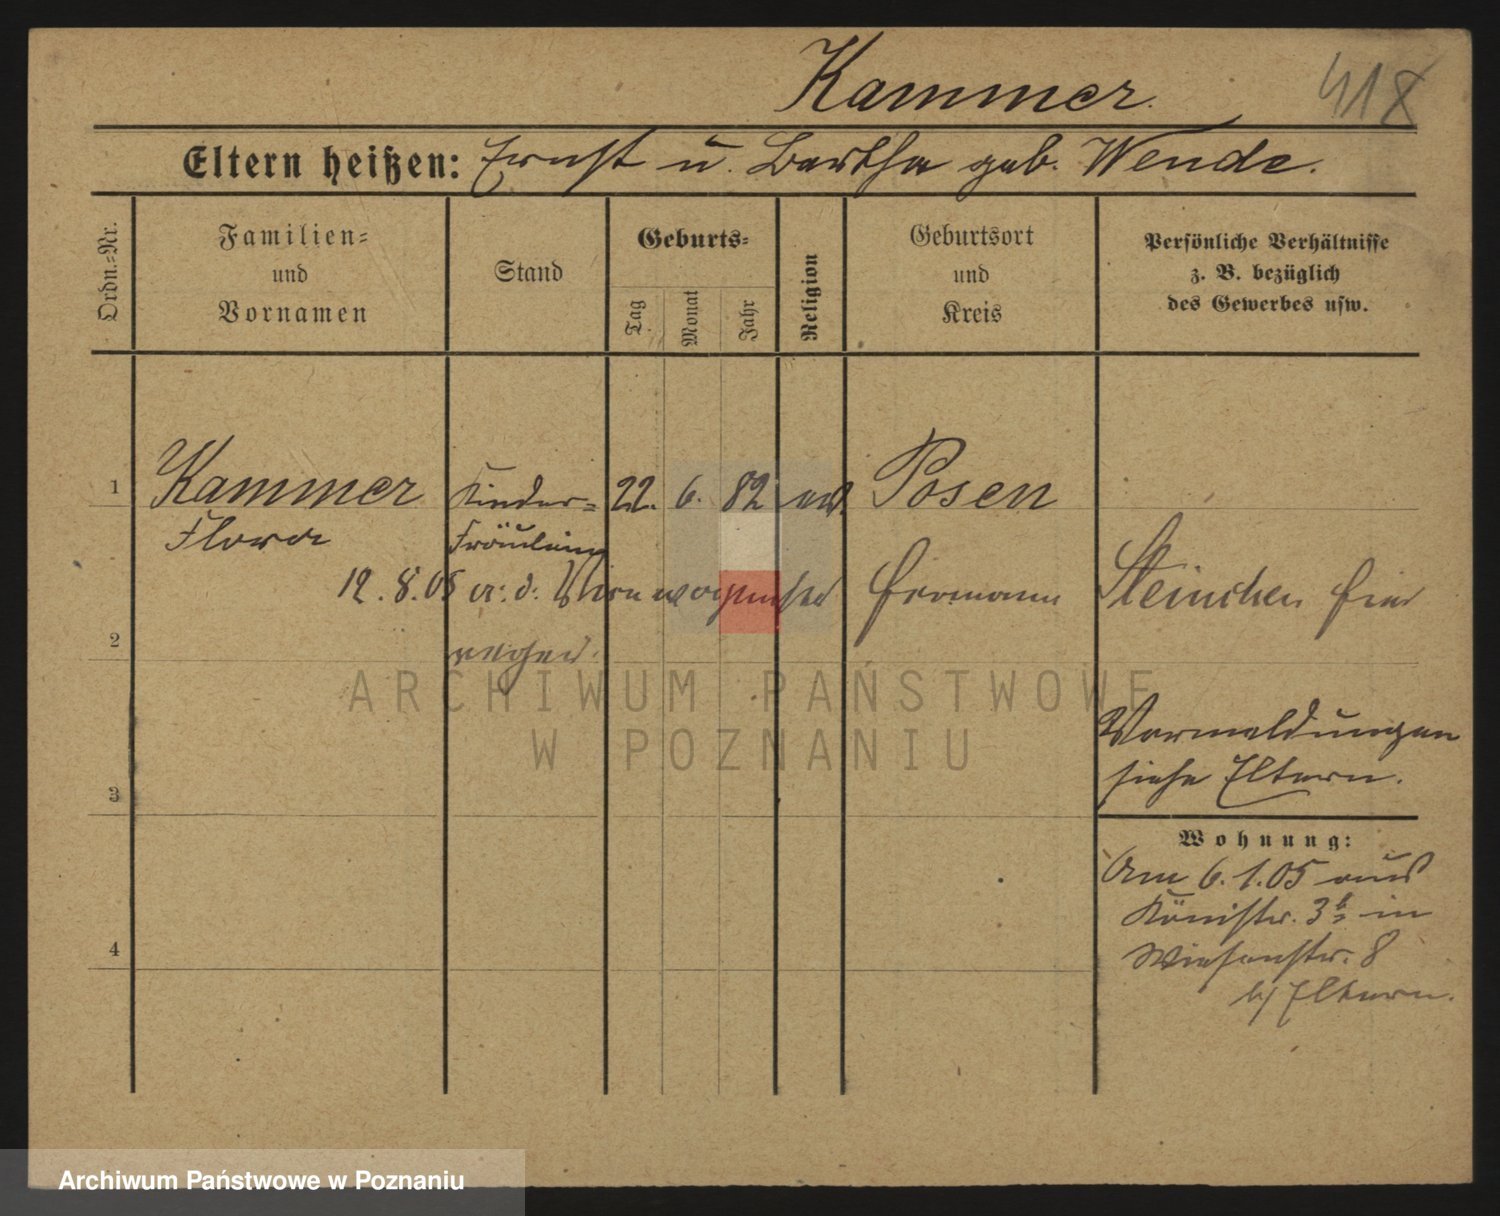 Kammer. 418
Eltern heißen: Ernst u. Bertha geb. Wende.
Ordn.-Nr.
Familien-
und
Vornamen
Stand
Geburts-
Tag
Monat
Jahr
Religion
Geburtsort
und
Kreis
Persönliche Verhältnisse
z. B. bezüglich
des Gewerbes usw.
1 Kammer Kinder- 22. 6. 82 ev. Posen
Flora Fräulein
12. 8. 05 a. d. Hermann Steinchen hier
2
Vormeldungen
siehe Eltern.
3
Wohnung:
Am 6.1.05 aus
Königstr. 3 in
Wiesenstr. 8
b/ Eltern.
4
ARCHIWUM PAŃSTWOWE
W POZNANIU
Archiwum Państwowe w Poznaniu